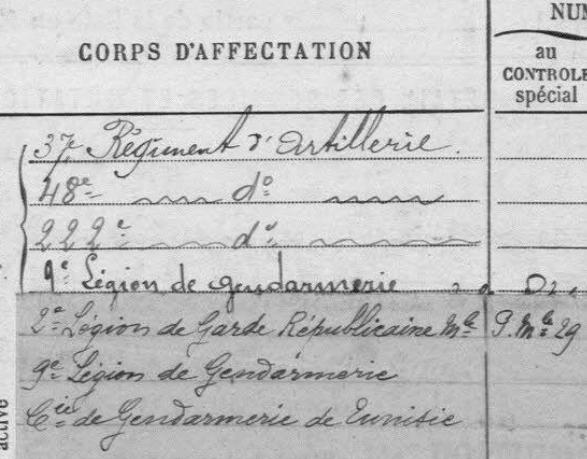 NUM
CORPS D'AFFECTATION
au
CONTROLE
spécial
37e Régiment d'Artillerie.
48e do
222e do
9e Légion de gendarmerie
2e Légion de Garde Républicaine Mle 9. Mle 29
9e Légion de Gendarmerie
Cie de Gendarmerie de Tunisie
active